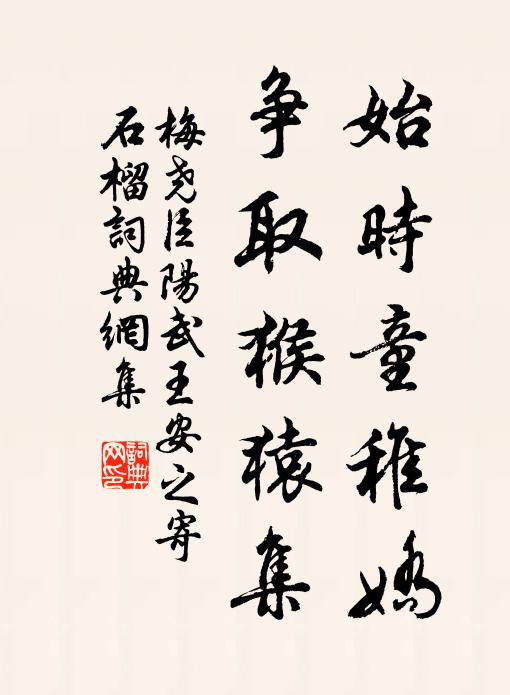 始時童稚嬌
争取猴猿集
梅尧臣陽武王安之寄
石榴詞典網集
詞典网印